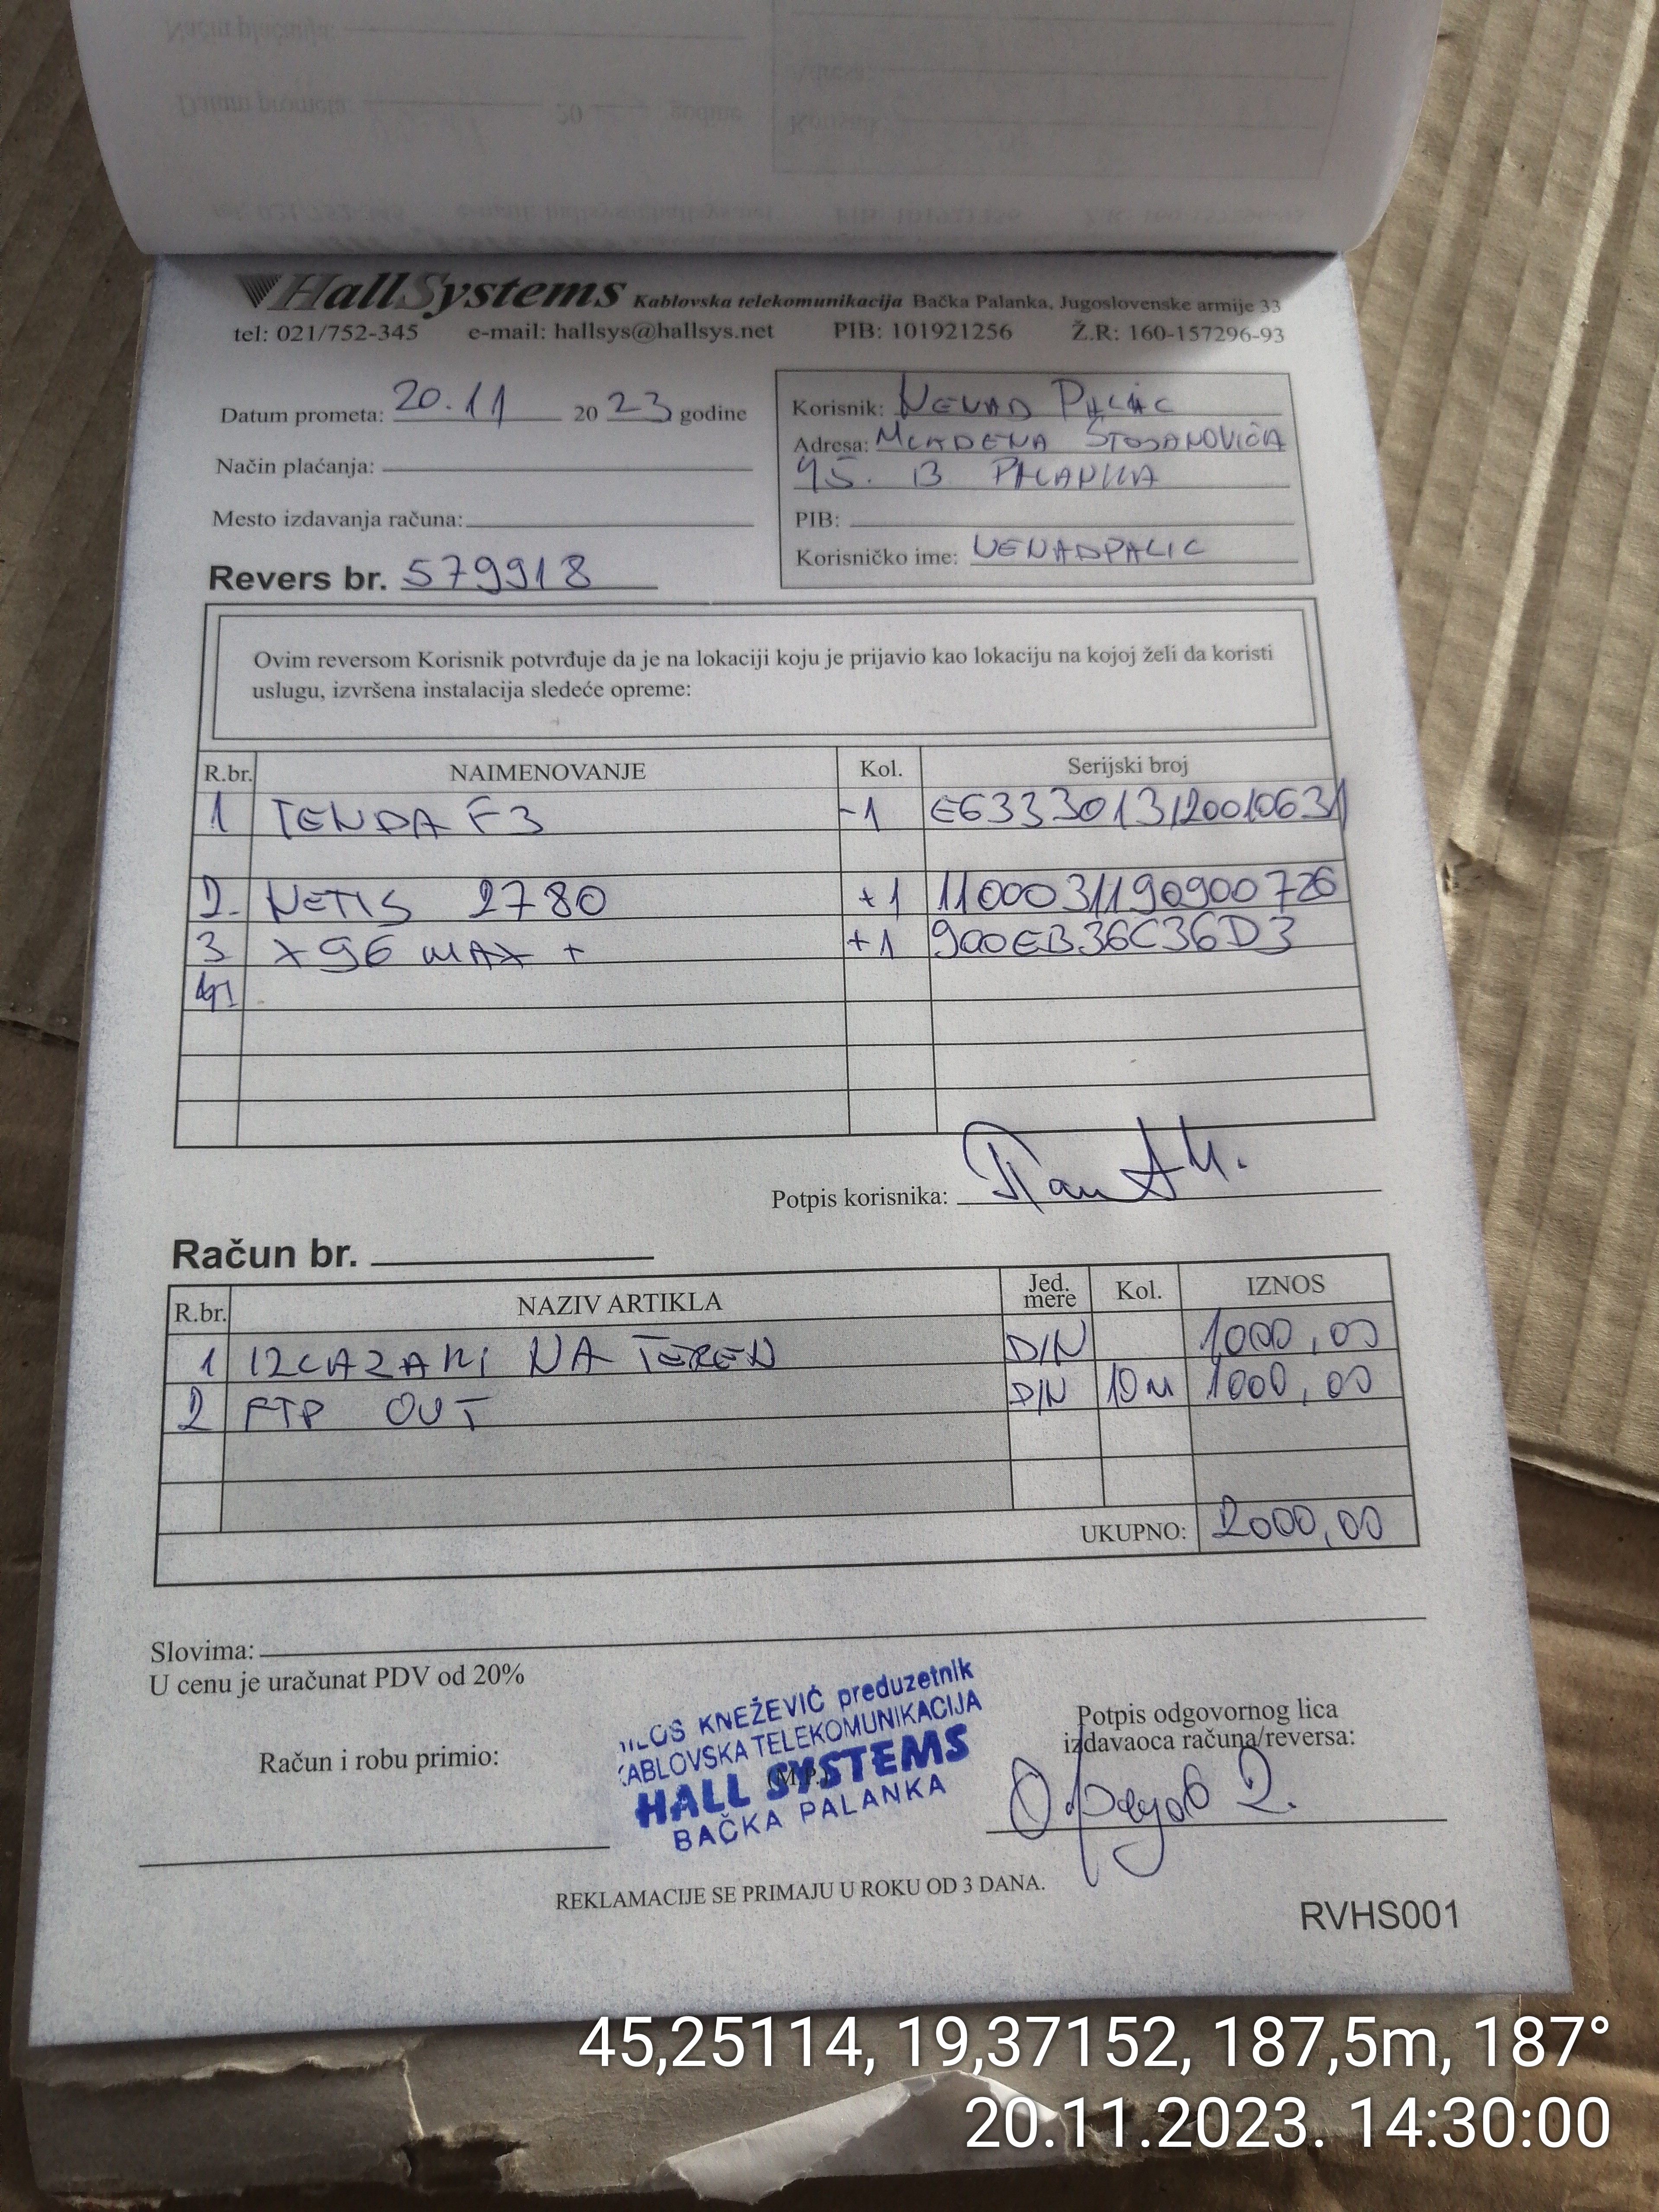 HallSystems Kablovska telekomunikacija Bačka Palanka, Jugoslovenske armije 33
tel: 021/752-345 e-mail: hallsys@hallsys.net PIB: 101921256 Ž.R: 160-157296-93
Datum prometa: 20.11 2023 godine
Način plaćanja:
Mesto izdavanja računa:
Revers br. 579918
Korisnik: NENAD PALIĆ
Adresa: MLADENA STOJANOVIĆA
95. B PALANKA
PIB:
Korisničko ime: NENADPALIC
Ovim reversom Korisnik potvrđuje da je na lokaciji koju je prijavio kao lokaciju na kojoj želi da koristi
uslugu, izvršena instalacija sledeće opreme:
R.br. NAIMENOVANJE Kol. Serijski broj
1 TENDA F3 -1 E6333013120010631
2. NETIS 2780 +1 1100031190900726
3 X96 MAX + +1 900EB36C36D3
Potpis korisnika:
Račun br.
R.br. NAZIV ARTIKLA Jed. mere Kol. IZNOS
1 IZLAZAK NA TEREN DIN 1000,00
2 FTP OUT DIN 10M 1000,00
UKUPNO: 2000,00
Slovima:
U cenu je uračunat PDV od 20%
Račun i robu primio:
KNEŽEVIĆ preduzetnik
KABLOVSKA TELEKOMUNIKACIJA
HALL SYSTEMS
(M.P.)
BAČKA PALANKA
Potpis odgovornog lica
izdavaoca računa/reversa:
REKLAMACIJE SE PRIMAJU U ROKU OD 3 DANA.
RVHS001
45,25114, 19,37152, 187,5m, 187°
20.11.2023. 14:30:00